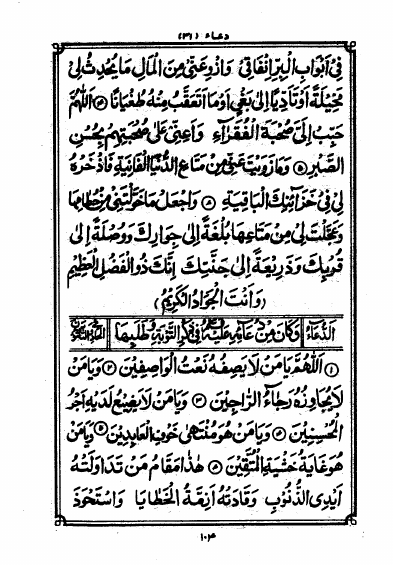 دعاء (٣١)
فِي أَبْوَابِ الْبِرِّ إِنْفَاقِي وَازْوِ عَنِّي مِنَ الْمَالِ مَا يُحْدِثُ لِي
مَخِيلَةً أَوْ تَأَدِّيًا إِلَى بَغْيٍ أَوْ مَا أَتَعَقَّبُ مِنْهُ طُغْيَانًا اَللّٰهُمَّ
حَبِّبْ إِلَيَّ صُحْبَةَ الْفُقَرَآءِ وَأَعِنِّي عَلَى صُحْبَتِهِمْ بِحُسْنِ
الصَّبْرِ وَمَا زَوَيْتَ عَنِّي مِنْ مَتَاعِ الدُّنْيَا الْفَانِيَةِ فَاذْخَرْهُ
لِي فِي خَزَآئِنِكَ الْبَاقِيَةِ وَاجْعَلْ مَا خَوَّلْتَنِي مِنْ حُطَامِهَا
وَعَجَّلْتَ لِي مِنْ مَتَاعِهَا بُلْغَةً إِلَى جِوَارِكَ وَوُصْلَةً إِلَى
قُرْبِكَ وَذَرِيعَةً إِلَى جَنَّتِكَ إِنَّكَ ذُو الْفَضْلِ الْعَظِيمِ
(وَأَنْتَ الْجَوَادُ الْكَرِيمُ)
اَلدُّعَاءُ وَكَانَ مِنْ دُعَائِهِ عَلَيْهِ السَّلَامُ فِي ذِكْرِ التَّوْبَةِ وَطَلَبِهَا
١ اَللّٰهُمَّ يَا مَنْ لَا يَصِفُهُ نَعْتُ الْوَاصِفِينَ ٢ وَيَا مَنْ
لَا يُجَاوِزُهُ رَجَاءُ الرَّاجِينَ ٣ وَيَا مَنْ لَا يَضِيعُ لَدَيْهِ أَجْرُ
الْمُحْسِنِينَ ٤ وَيَا مَنْ هُوَ مُنْتَهَى خَوْفِ الْعَابِدِينَ ٥ وَيَا مَنْ
هُوَ غَايَةُ خَشْيَةِ الْمُتَّقِينَ هٰذَا مَقَامُ مَنْ تَدَاوَلَتْهُ
أَيْدِي الذُّنُوبِ وَقَادَتْهُ أَزِمَّةُ الْخَطَايَا وَاسْتَحْوَذَ
١٠٤